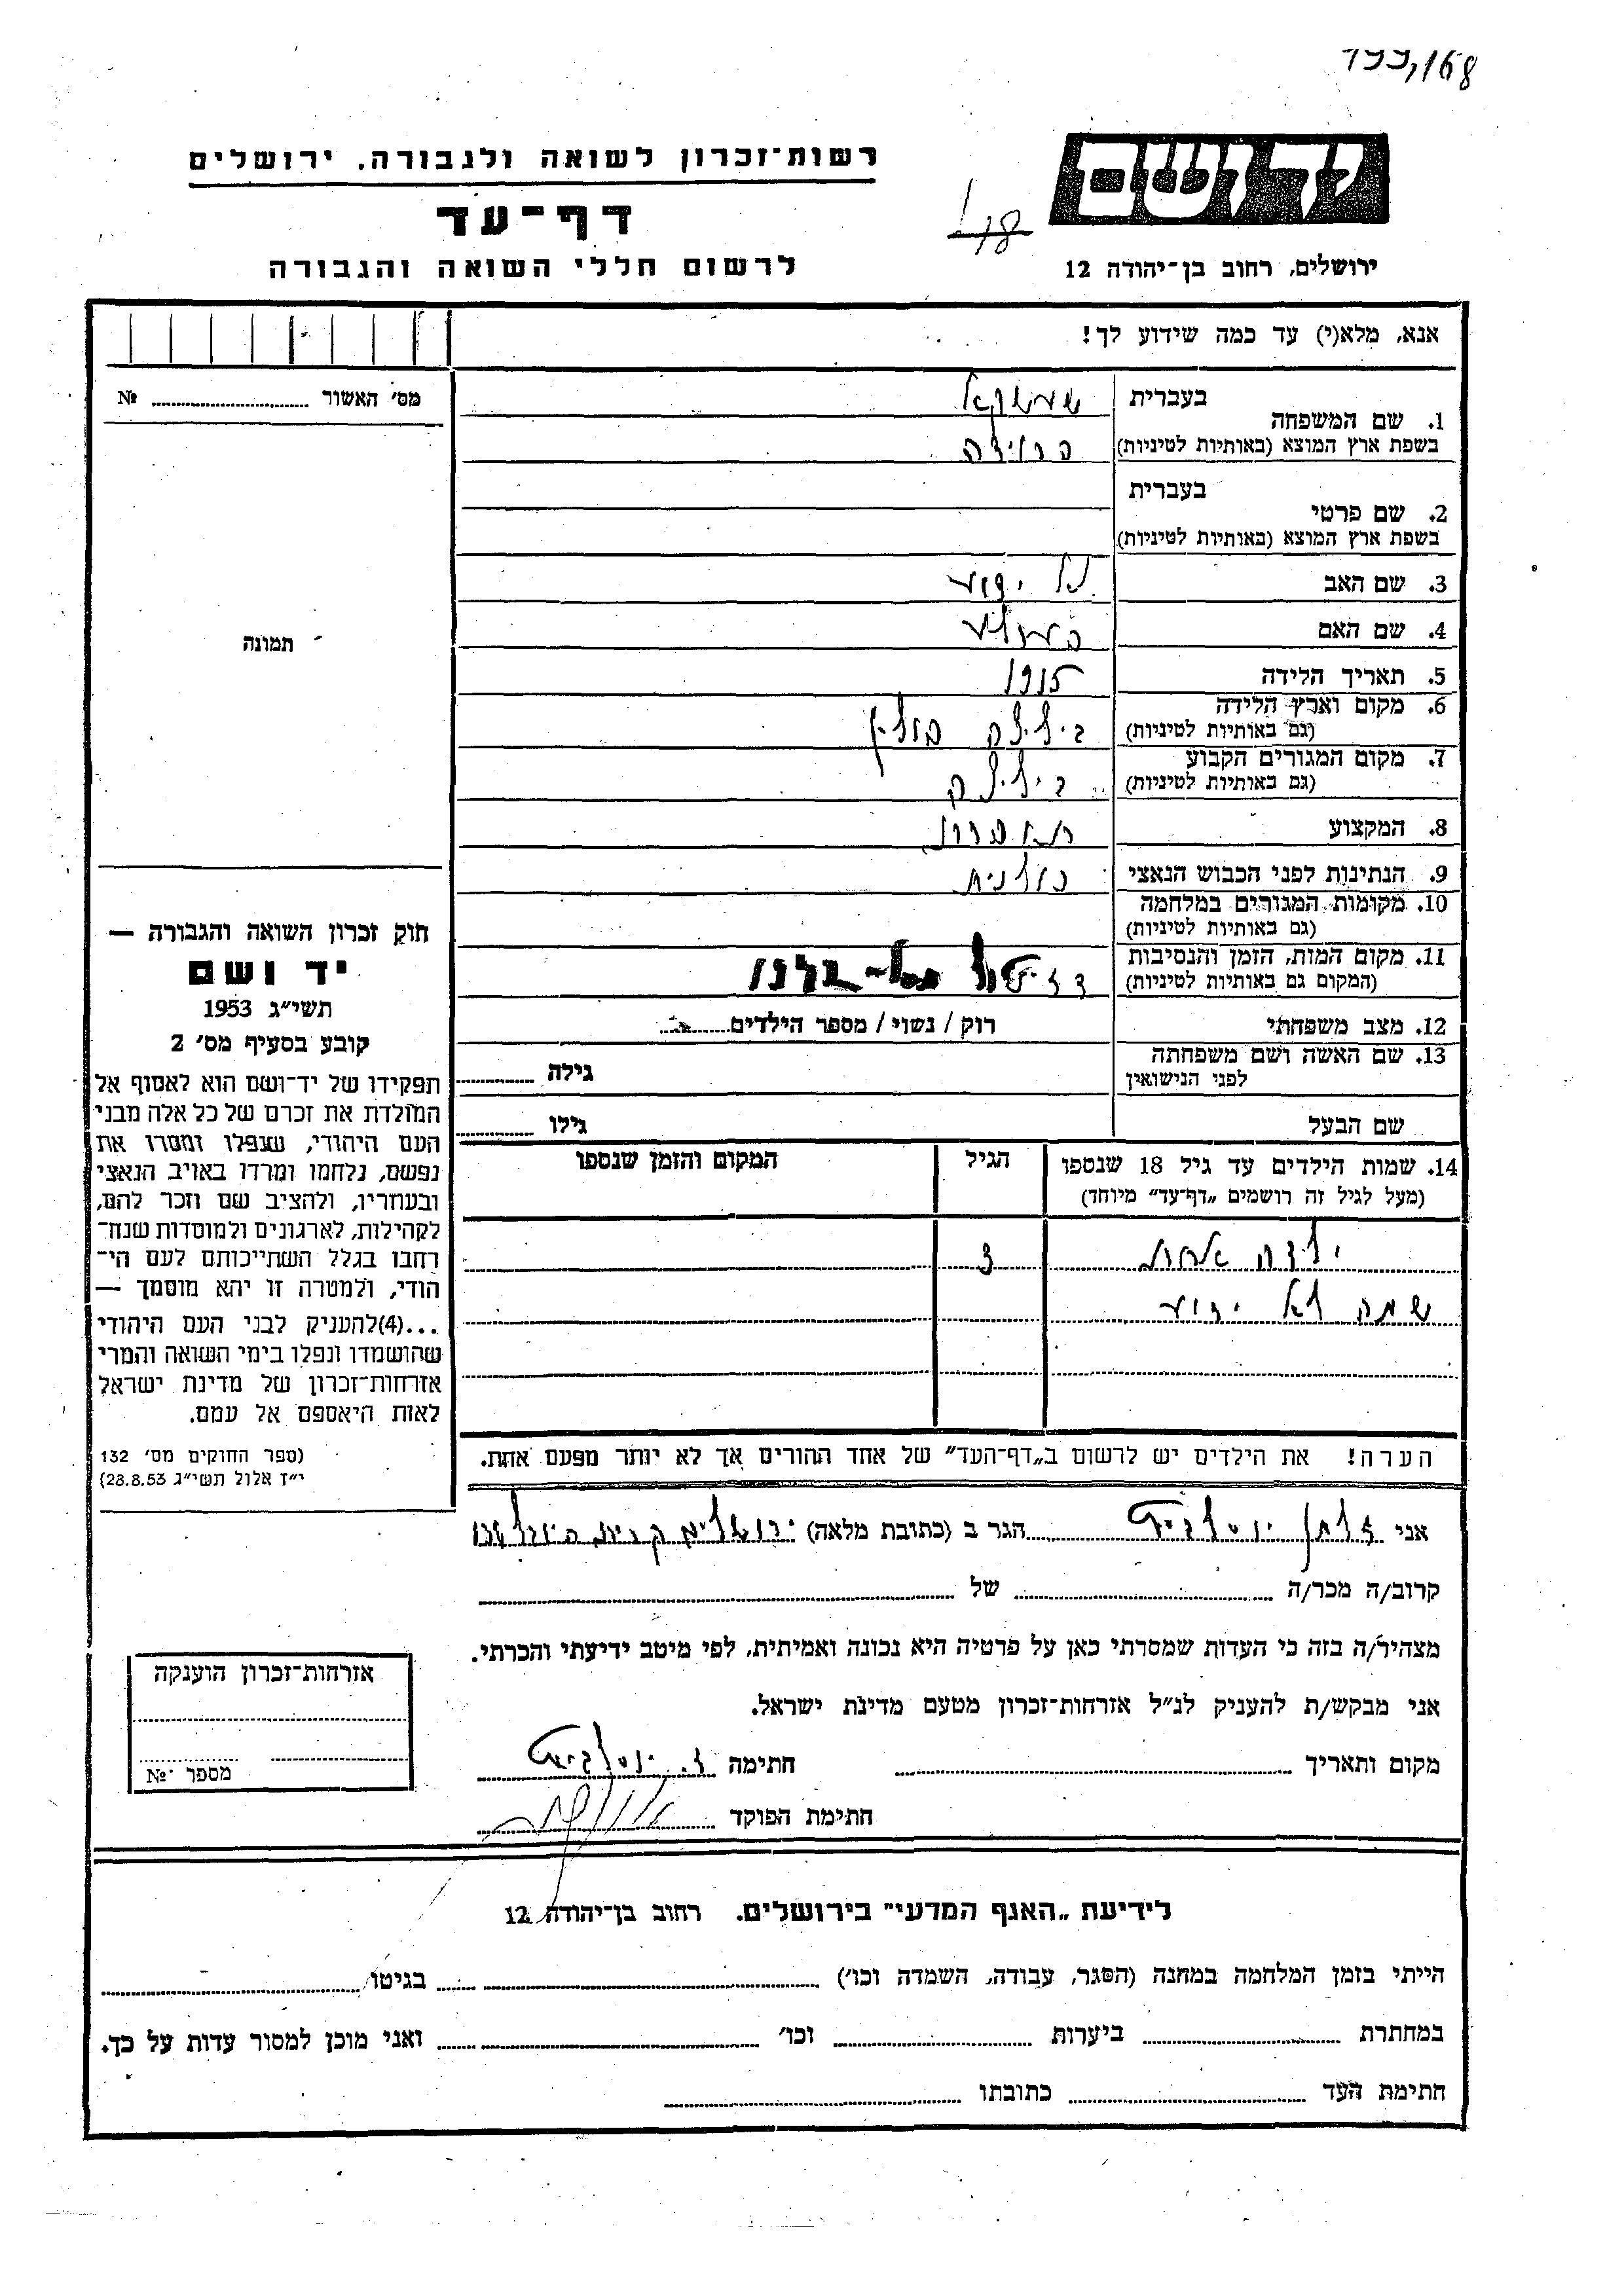 199/168
יד ושם
רשות־זכרון לשואה ולגבורה, ירושלים
דף־עד
לרשום חללי השואה והגבורה
ירושלים, רחוב בן־יהודה 12
אנא, מלא(י) עד כמה שידוע לך!
מס׳ האשור № 
1. שם המשפחה
בעברית
בשפת ארץ המוצא (באותיות לטיניות)
2. שם פרטי
בעברית
בשפת ארץ המוצא (באותיות לטיניות)
3. שם האב לא ידוע
4. שם האם
5. תאריך הלידה 1915
6. מקום וארץ הלידה
(גם באותיות לטיניות) פולין
7. מקום המגורים הקבוע
(גם באותיות לטיניות)
8. המקצוע
9. הנתינות לפני הכבוש הנאצי פולנית
10. מקומות המגורים במלחמה
(גם באותיות לטיניות)
11. מקום המות, הזמן והנסיבות
(המקום גם באותיות לטיניות)
12. מצב משפחתי רוק / נשוי / מספר הילדים
13. שם האשה ושם משפחתה
לפני הנישואין גילה
שם הבעל גילו
14. שמות הילדים עד גיל 18 שנספו
(מעל לגיל זה רושמים „דף־עד״ מיוחד)
הגיל
המקום והזמן שנספו
ילדה אחת 3
שמה לא ידוע
הערה! את הילדים יש לרשום ב„דף־העד״ של אחד ההורים אך לא יותר מפעם אחת.
תמונה
חוק זכרון השואה והגבורה —
יד ושם
תשי״ג 1953
קובע בסעיף מס׳ 2
תפקידו של יד־ושם הוא לאסוף אל
המולדת את זכרם של כל אלה מבני
העם היהודי, שנפלו ומסרו את
נפשם, נלחמו ומרדו באויב הנאצי
ובעוזריו, ולהציב שם וזכר להם,
לקהילות, לארגונים ולמוסדות שנח־
רבו בגלל השתייכותם לעם הי־
הודי, ולמטרה זו יהא מוסמך —
...(4)להעניק לבני העם היהודי
שהושמדו ונפלו בימי השואה והמרי
אזרחות־זכרון של מדינת ישראל
לאות היאספם אל עמם.
(ספר החוקים מס׳ 132
י״ז אלול תשי״ג 28.8.53)
אני זלמן הגר ב (כתובת מלאה) ירושלים קרית היובל
קרוב/ה מכר/ה של
מצהיר/ה בזה כי העדות שמסרתי כאן על פרטיה היא נכונה ואמיתית, לפי מיטב ידיעתי והכרתי.
אני מבקש/ת להעניק לנ״ל אזרחות־זכרון מטעם מדינת ישראל.
מקום ותאריך חתימה
חתימת הפוקד
אזרחות־זכרון הוענקה
מספר №
לידיעת „האגף המדעי״ בירושלים. רחוב בן־יהודה 12
הייתי בזמן המלחמה במחנה (הסגר, עבודה, השמדה וכו׳) בגיטו
במחתרת ביערות וכו׳ ואני מוכן למסור עדות על כך.
חתימת העד כתובתו